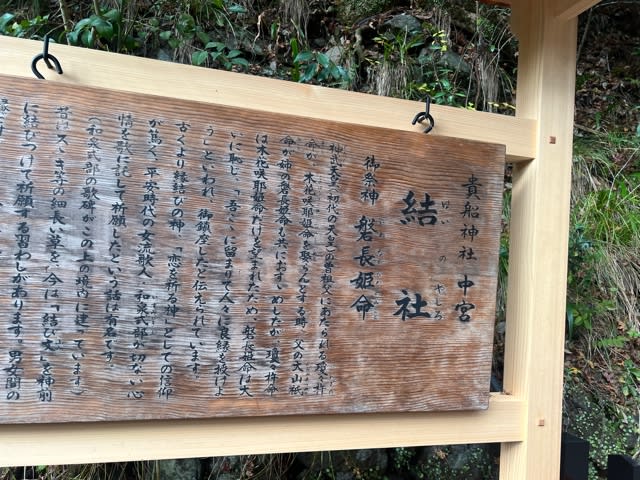 貴船神社 中宮
結社
けいのやしろ
御祭神 磐長姫命
神武天皇(初代の天皇)の曽祖父にあたられる瓊々杵
命が、木花咲耶姫命を娶らんとする時、父の大山祇
命が姉の磐長姫命も共におすゝめしたが、瓊々杵命
は木花咲耶姫命だけを望まれたため、磐長姫命は大
いに恥じ、「吾ここに留まりて人々に良縁を授けよ
う」といわれ、御鎮座したと伝えられています。
古くより縁結びの神・「恋を祈る神」としての信仰
が篤く、平安時代の女流歌人・和泉式部が切ない心
情を歌に託して祈願したという話は有名です。
(和泉式部の歌碑がこの上の境内に建っています)
昔はススキ等の細長い草を、今は「結び文」を神前
に結びつけて祈願する習わしがあります。男女間の